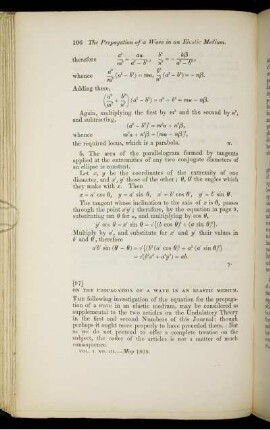 100 The Propagation of a Wave in an Elastic Medium.
therefore
whence
Adding these,
Again, multiplying the first by m' and the second by a',
and subtracting,
whence
the required locus, which is a parabola.
5. The area of the parallelogram formed by tangents
applied at the extremities of any two conjugate diameters of
an ellipse is constant.
Let x, y be the coordinates of the extremity of one
diameter, and x', y' those of the other; θ, θ' the angles which
they make with x. Then
x = a' cos θ, y = a' sin θ, x' = b' cos θ', y' = b' sin θ'.
The tangent whose inclination to the axis of x is θ, passes
through the point x'y'; therefore, by the equation in page 9,
substituting tan θ for a, and multiplying by cos θ,
y' cos θ - x' sin θ = √{(b cos θ)² + (a sin θ)²}.
Multiply by a', and substitute for x' and y' their values in
b' and θ', therefore
a'b' sin (θ' - θ) = √{(b²(a' cos θ)² + a²(a' sin θ)²}
= √(b²x² + a²y²) = ab.
ON THE PROPAGATION OF A WAVE IN AN ELASTIC MEDIUM.
THE following investigation of the equation for the propaga-
tion of a wave in an elastic medium, may be considered as
supplemental to the two articles on the Undulatory Theory
in the first and second Numbers of this Journal: though
perhaps it ought more properly to have preceded them. But
as we do not pretend to offer a complete treatise on the
subject, the order of the articles is not a matter of much
consequence.
VOL. I. NO. III.—May 1838.